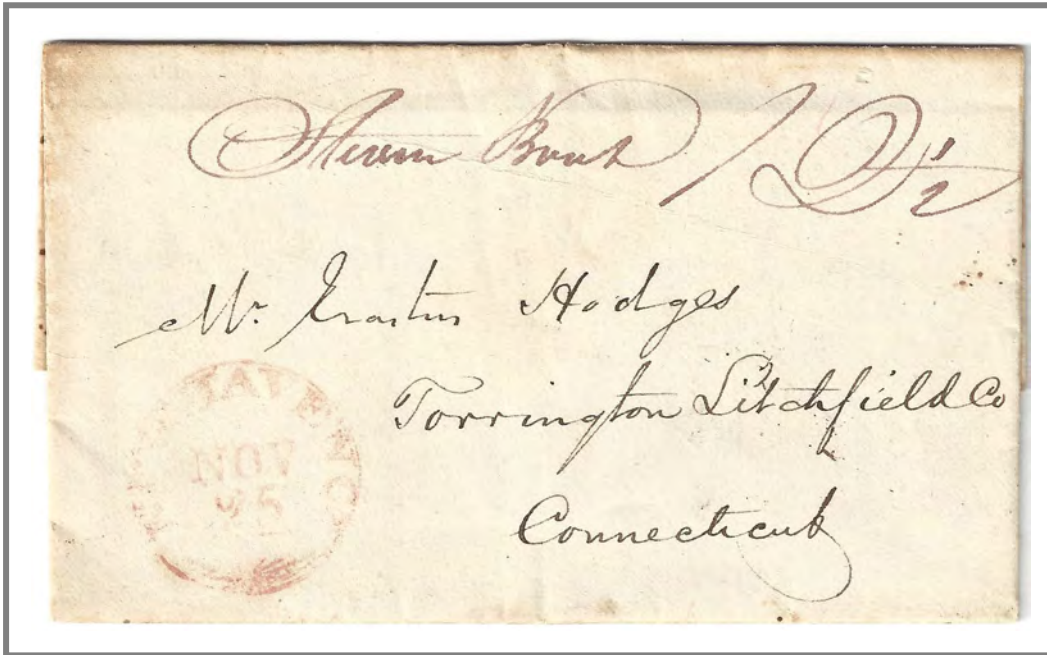 Steam Boat / 12 1/2
Mr. Erastus Hodges
Torrington Litchfield Co
Connecticut
NEW HAVEN C
NOV
25